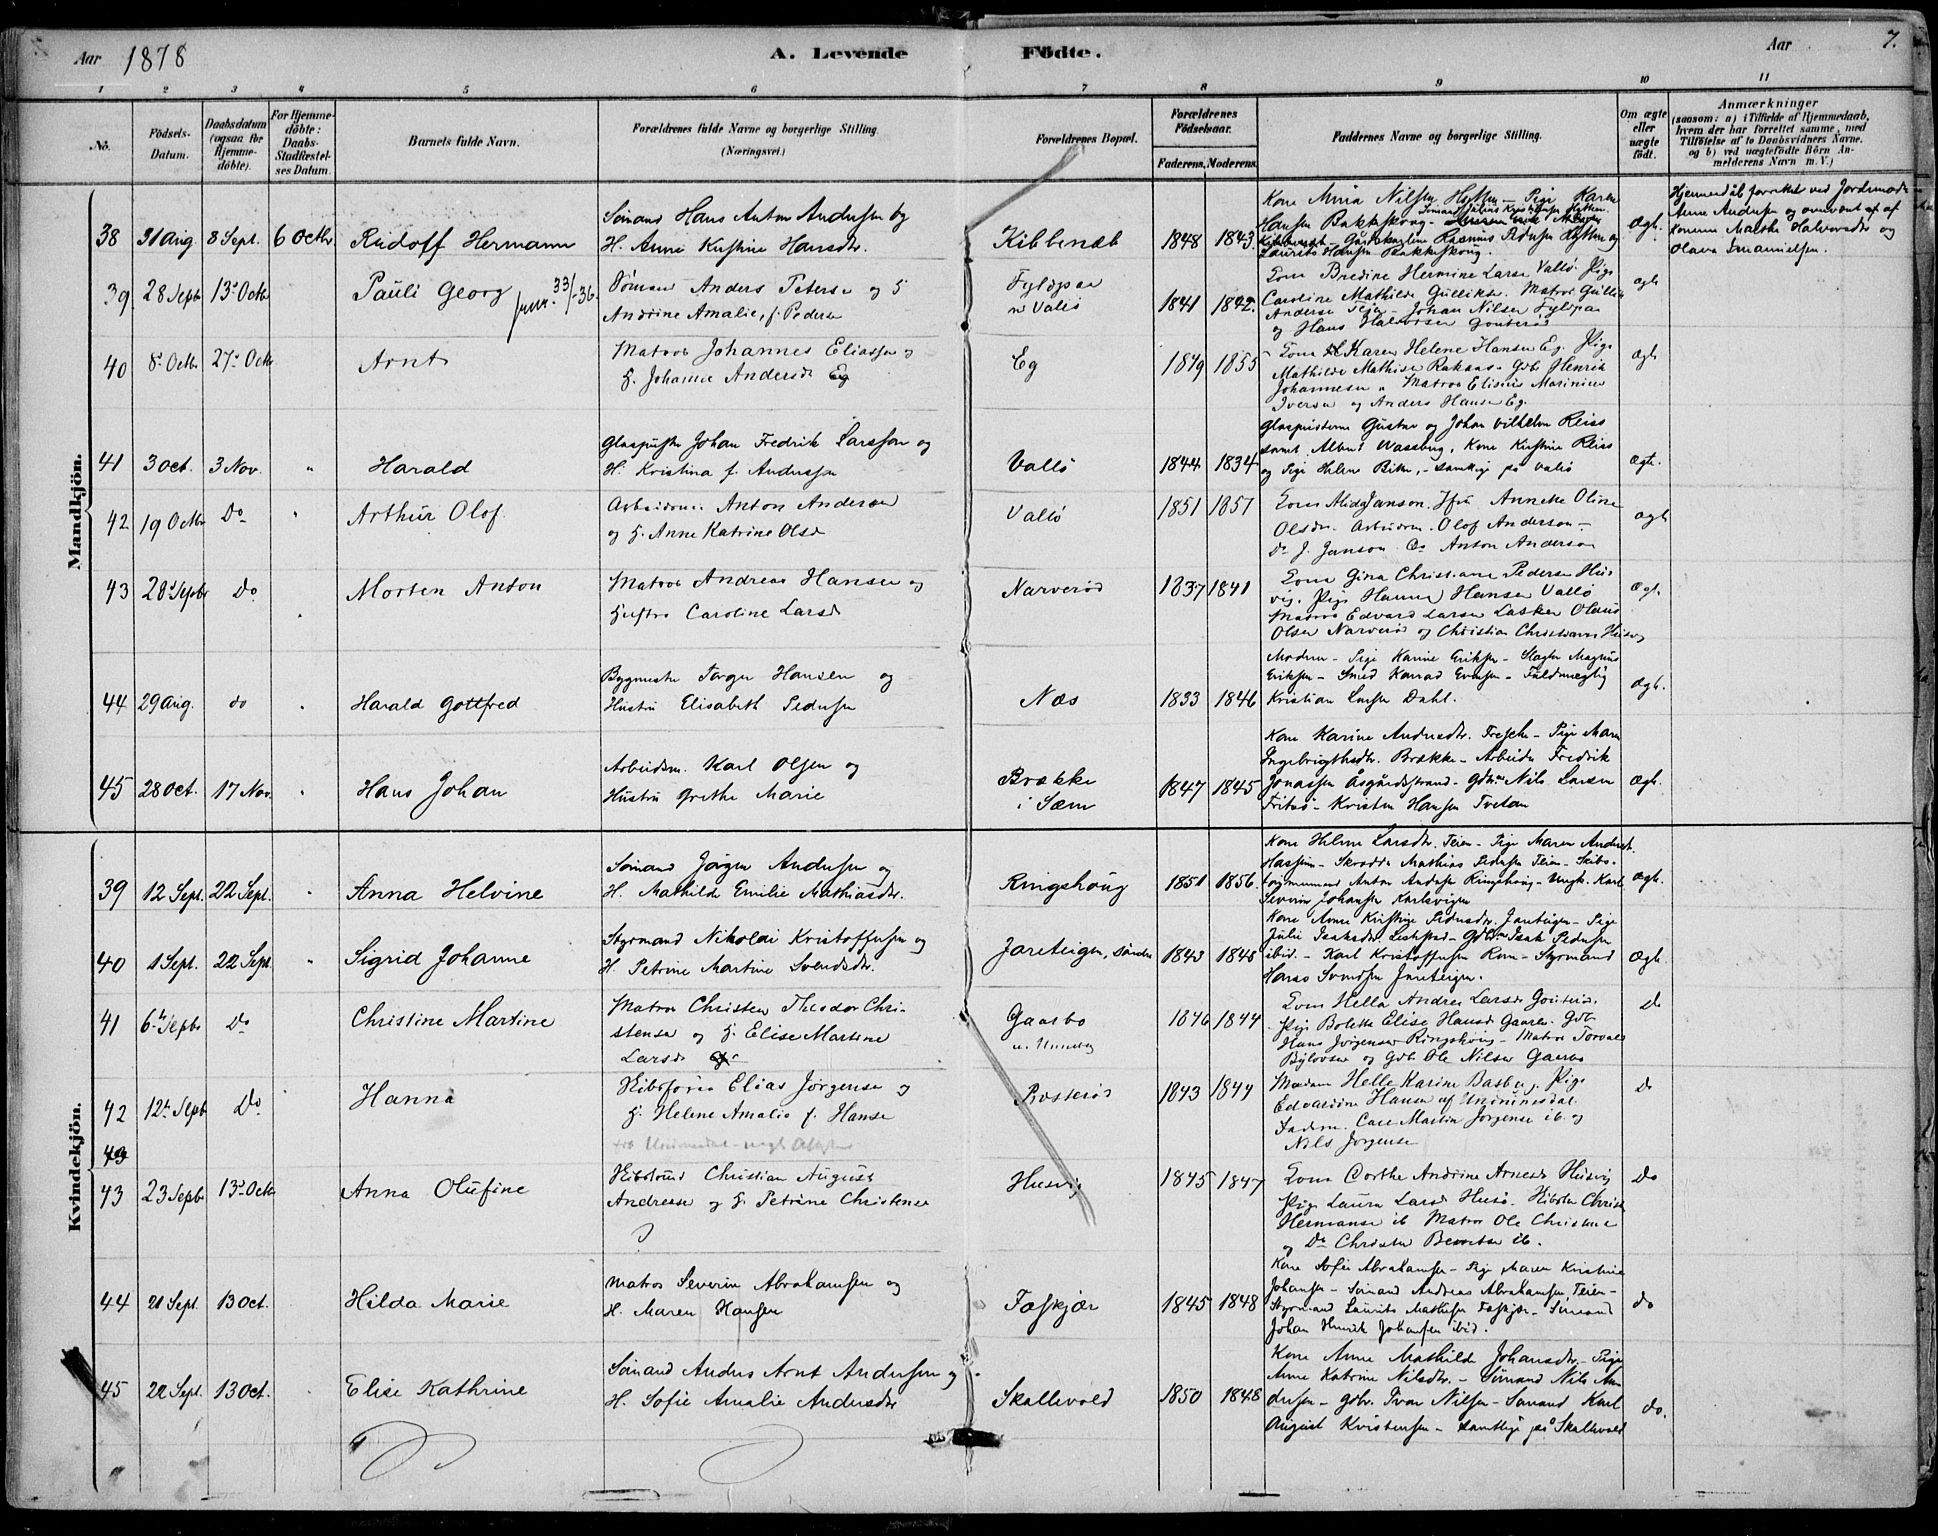 Aar 1878
A. Levende Fødte.
Aar
7.
1 2 3 4 5 6 7 8 9 10 11
No.
Fødsels-Datum.
Daabsdatum (ogsaa for Hjemmedøbte).
For Hjemmedøbte: Daabs-Stadfæstelses Datum.
Barnets fulde Navn.
Forældrenes fulde Navne og borgerlige Stilling. (Næringsvei.)
Forældrenes Bopæl.
Forældrenes Fødselsaar.
Faderens. Moderens.
Faddernes Navne og borgerlige Stilling.
Om ægte eller uægte født.
Anmærkninger
(saasom: a) i Tilfælde af Hjemmedaab,
hvem der har forrettet samme, med
Tilføielse af to Daabsvidners Navne,
og b) ved uægtefødte Børn Anmelderens Navn m. V.)
Mandkjön.
38 31 Aug. 8 Sept. 6 Octbr Rudolf Hermann
Sømand Hans Anton Andersen og
H. Anne Kristine Hansdtr.
Kibbenæb 1848 1843
Kone Maria Nilsen Hytten - Pige Karen
Hansen Bakkeskoug
Laurits Hansen Bakkeskoug.
Ægte.
Hjemmedåb forrettet ved Jordemoder
Anne Andersen og overværet af
Konerne Marthe Halvorsdtr og
Olava Emanuelsen.
39 28 Septb 13' Octb Pauli Georg 33/36.
Sømand Anders Petersen og H
Andrine Amalie, f. Pedersen
Fyldpaa
v Vallö 1841 1842.
Kone Bredine Hermine Larsen Vallö. Pige
Caroline Mathilde Gulliks. Matros Gullik
Andersen Teje - Johan Nilsen Fyldpaa
og Hans Halvorsen Gouterød
ægte
40 8' Octbr 27' Octb Arnt
Matros Johannes Eliassen og
H. Johanne Andersd Eg
Eg 1849 1855
Kone Karen Helene Hansen Eg. Pige
Mathilde Mathisen Rakaas. Gdb Henrik
Johannesen. Matros Elisius Marinius
Iversen og Anders Hansen Eg.
Ægte
41 3 Oct. 3 Nov. " Harald
Glaspuster Johan Fredrik Larsson og
H. Kristina f. Andersson
Vallö 1844 1834
Glaspusterne Gustav og Johan Vilhelm Reiss
samt Albert Wassberg, Kone Kristine Reiss
og Pige Helene - samtlige på Vallö
Ægte.
42 19 Octbr Do " Arthur Olof
Arbeidsm. Anton Anderson
og H. Anne Katrine Olsd
Vallö 1851 1857
Kone Alida Janson. Jfr Annette Oline
Olsdr. Arbeidsm. Olof Anderson -
Do J. Janson. Do Anton Anderson
ægte
43 28' Septbr Do. Morten Anton
Matros Andreas Hansen og
Hustru Caroline Larsd
Narverød 1837 1841
Kone Gina Christiane Pedersen Husvig.
Pige Hanna Hansen Vallö
Matros Edvard Larsen Laskerød Olaus
Olsen Narverød og Christian Christiansen Husvig
Ægte.
44 29 Aug. do " Harald Gottfred
Bygmester Torger Hansen og
Hustru Elisabeth Pedersen
Næs 1833 1846
Moderen - Pige Karine Eriksen - Slagter Magnus
Eriksen - Smed Konrad Evensen - Fuldmægtig
Kristian Larsen Dahl.
Ægte.
45 28 Oct. 17 Nov. " Hans Johan
Arbeidsm. Karl Olsen og
Hustru Grethe Marie
Brække
i Sæm 1847 1845
Kone Karine Andersdtr. Freste - Pige Maren
Ingebrigtsdtr. Brække - Arbeider Fredrik
Jonassen Åsgårdstrand - Gdbr Nils Larsen
Fritsö - Kristen Hansen Tvetan
Ægte.
Kvindekjön.
39 12 Sept. 22 Sept. " Anna Helvine
Sømand Jørgen Andersen og
H. Mathilde Emilie Mathiasdtr.
Ringshoug 1851 1856.
Kone Helene Larsdtr. Teien - Pige Maren Andersdtr.
Hassum - Skrædder Mathias Pedersen Teien - Skibs-
tømmermand Anton Andersen Ringshoug - Ungk. Karl
Severin Johansen Karlsvigen
Ægte.
40 1 Sept. 22 Sept " Sigrid Johanne
Styrmand Nikolai Kristoffersen og
H. Petrine Martine Svendsdtr.
Jareteigen, Søndre 1843 1848
Kone Anne Kirstine Pedersdtr. Jareteigen - Pige
Julie Isaksdtr. - Gdbr Isak Pedersen
ibid. - Karl Kristoffersen Rom - Styrmand
Hans Svendsen Jareteigen.
Ægte.
41 6te Septb Do Christine Martine
Matros Christen Theodor Chri-
stensen og H. Elise Martine
Larsd
Gaasbo
1846 1844
Kone Hella Andrea Larsd Gouterød.
Pige Bolette Elise Hansd Gaaren. Gdb
Hans Jørgensen Ringshoug - Matros Torvald
Bylovsen og Gdb Ole Nilsen Gaasbo
Do
42 12te Septb Do. Hanna
Skibsfører Elias Jørgensen og
H. Helene Amalie f. Hansen
Basserød 1843 1844
Madam Helle Karine Basberg. Pige
Edvardine Hansen af Undrumsdal.
Faderen. Carl Martin Jørgensen ib. og
Nils Jørgensen
Do
43
43 23 Septb 13' Octb Anna Olufine
Skibstømmermd Christian August
Andresen og H. Petrine Christensen
Husvig 1845 1847
Kone Dorthe Andrine Arnesd Husvig
Pige Laura Larsd Husø. Skibstm Christen
Hermansen ib Matros Ole Christensen
og Do Christen Berntsen ib.
Do
44 21 Sept. 13 Oct. Hilda Marie
Matros Severin Abrahamsen og
H. Maren Hansen
Foskjær 1845 1848
Kone Sofie Abrahamsen - Pige Maren Kristine
Johansen - Sømand Andreas Abrahamsen, Teien -
Styrmand Laurits Mathisen Foskjær - Sømand
Johan Henrik Johansen ibid.
do
45 22 Sept. 13 Oct. Elise Kathrine
Sømand Anders Arnt Andersen og
H. Sofie Amalie Andersdtr
Skallevold 1850 1848
Kone Anne Mathilde Johansdtr. - Pige
Anne Katrine Nilsdtr. - Sømand Nils An-
dersen - Gdbr. Ivar Nilsen - Sømand Karl
August Kristensen - samtlige på Skallevold
do.